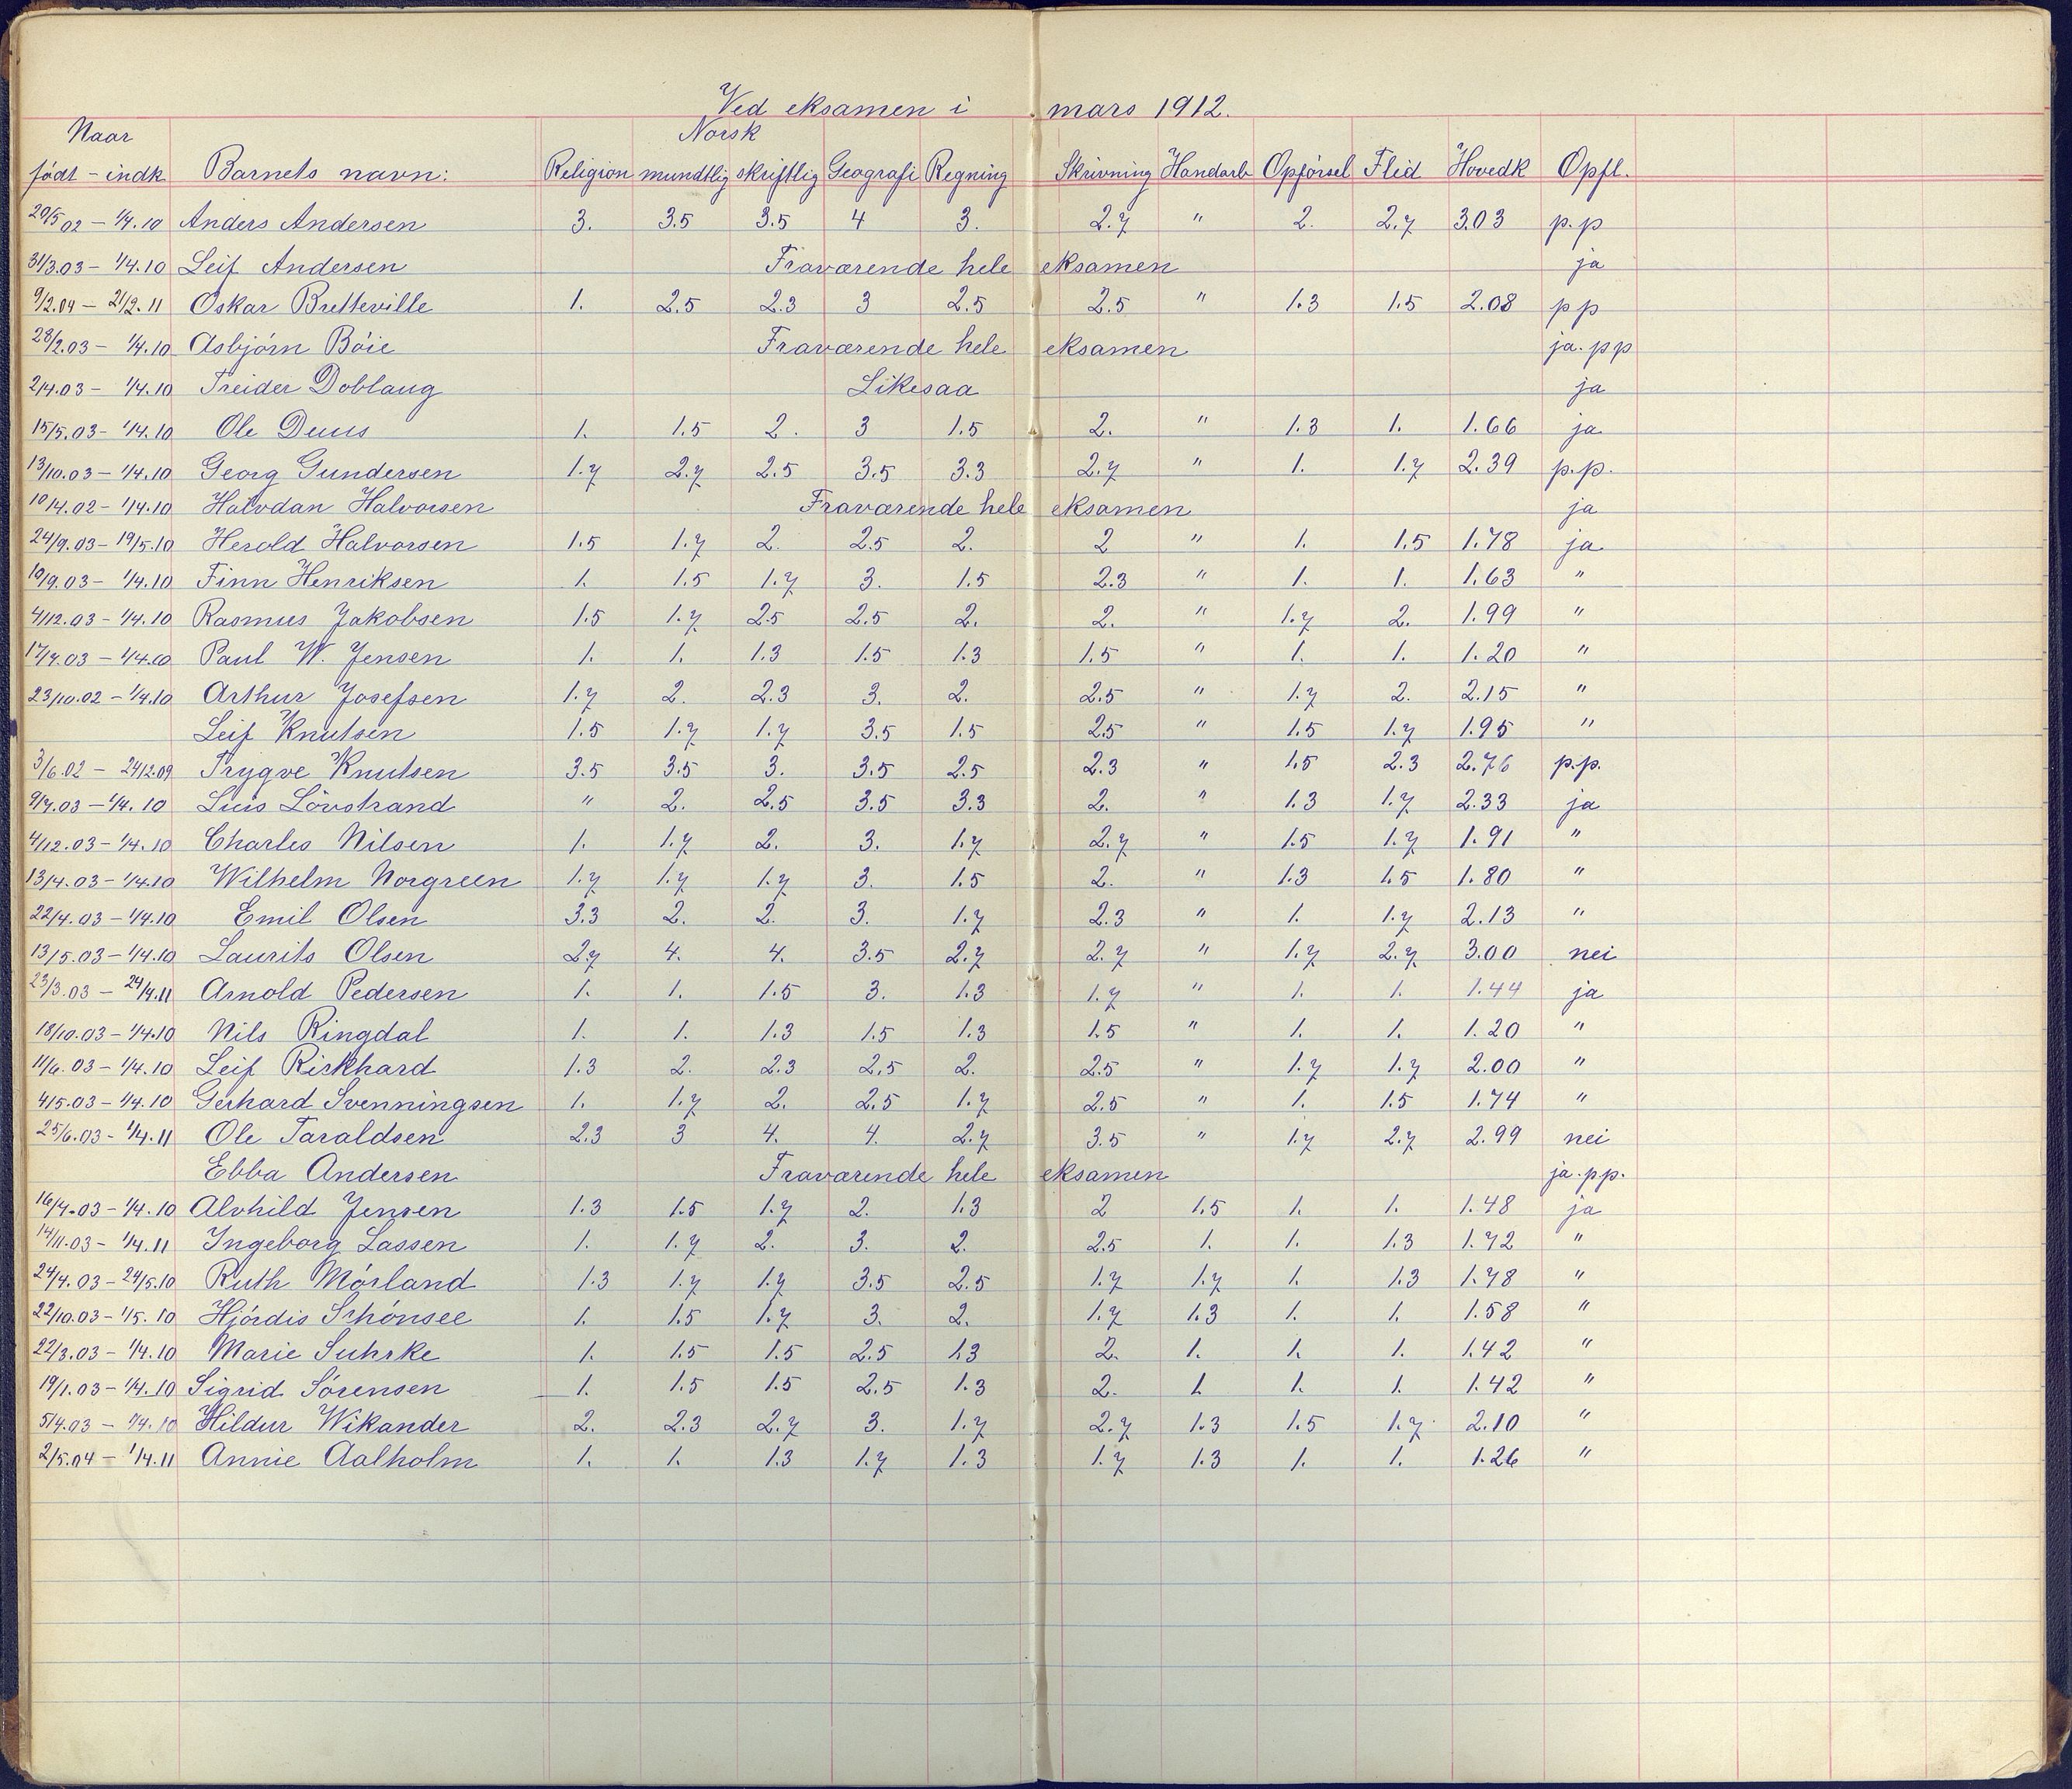 Ved eksamen i mars 1912.
Naar Norsk
født - indk Barnets navn: Religion mundtlig skriftlig Geografi Regning Skrivning Handarb Opførsel Flid Hovedk Opfl.
20/5 02 - 1/4.10 Anders Andersen 3. 3.5 3.5 4 3. 2.7 " 2. 2.7 3.03 p.p
31/3.03 - 1/4.10 Leif Andersen Fraværende hele eksamen ja
9/2.04 - 21/2.11 Oskar Bretteville 1. 2.5 2.3 3 2.5 2.5 " 1.3 1.5 2.08 pp
28/2.03 - 1/4.10 Asbjørn Bøie Fraværende hele eksamen ja. pp
2/4.03 - 1/4.10 Treider Doblaug Likesaa ja
15/5.03 - 1/4.10 Ole Duus 1. 1.5 2. 3 1.5 2. " 1.3 1. 1.66 ja
13/10.03 - 1/4.10 Georg Gundersen 1.7 2.7 2.5 3.5 3.3 2.7 " 1. 1.7 2.39 p.p.
10/4.02 - 1/4.10 Halvdan Halvorsen Fraværende hele eksamen ja
24/9.03 - 19/5.10 Herold Halvorsen 1.5 1.7 2. 2.5 2. 2 " 1. 1.5 1.78 ja
10/9.03 - 1/4.10 Finn Henriksen 1. 1.5 1.7 3. 1.5 2.3 " 1. 1. 1.63 "
4/12.03 - 1/4.10 Rasmus Jakobsen 1.5 1.7 2.5 2.5 2. 2. " 1.7 2. 1.99 "
17/7.03 - 1/4.10 Paul W. Jensen 1. 1. 1.3 1.5 1.3 1.5 " 1. 1. 1.20 "
23/10.02 - 1/4.10 Arthur Josefsen 1.7 2. 2.3 3. 2. 2.5 " 1.7 2. 2.15 "
Leif Knutsen 1.5 1.7 1.7 3.5 1.5 2.5 " 1.5 1.7 1.95 "
3/6.02 - 24/12.09 Trygve Knutsen 3.5 3.5 3. 3.5 2.5 2.3 " 1.5 2.3 2.76 p.p.
9/7.03 - 1/4.10 Luis Løvstrand " 2. 2.5 3.5 3.3 2. " 1.3 1.7 2.33 ja
4/12.03 - 1/4.10 Charles Nilsen 1. 1.7 2. 3. 1.7 2.7 " 1.5 1.7 1.91 "
13/4.03 - 1/4.10 Wilhelm Norgreen 1.7 1.7 1.7 3. 1.5 2. " 1.3 1.5 1.80 "
22/4.03 - 1/4.10 Emil Olsen 3.3 2. 2. 3. 1.7 2.3 " 1. 1.7 2.13 "
13/5.03 - 1/4.10 Laurits Olsen 2.7 4. 4. 3.5 2.7 2.7 " 1.7 2.7 3.00 nei
23/3.03 - 24/4.11 Arnold Pedersen 1. 1. 1.5 3. 1.3 1.7 " 1. 1. 1.44 ja
18/10.03 - 1/4.10 Nils Ringdal 1. 1. 1.3 1.5 1.3 1.5 " 1. 1. 1.20 "
11/6.03 - 1/4.10 Leif Rirkhard 1.3 2. 2.3 2.5 2. 2.5 " 1.7 1.7 2.00 "
4/5.03 - 1/4.10 Gerhard Svenningsen 1. 1.7 2. 2.5 1.7 2.5 " 1. 1.5 1.74 "
25/6.03 - 1/4.11 Ole Taraldsen 2.3 3 4. 4. 2.7 3.5 " 1.7 2.7 2.99 nei
Ebba Andersen Fraværende hele eksamen ja. p.p.
16/7.03 - 1/4.10 Alvhild Jensen 1.3 1.5 1.7 2. 1.3 2 1.5 1. 1. 1.48 ja
14/11.03 - 1/4.11 Ingeborg Lassen 1. 1.7 2. 3. 2. 2.5 1. 1. 1.3 1.72 "
24/4.03 - 24/5.10 Ruth Mørland 1.3 1.7 1.7 3.5 2.5 1.7 1.7 1. 1.3 1.78 "
22/10.03 - 1/5.10 Hjørdis Schønsee 1. 1.5 1.7 3. 2. 1.7 1.3 1. 1. 1.58 "
22/3.03 - 1/4.10 Marie Suhrke 1. 1.5 1.5 2.5 1.3 2. 1. 1. 1. 1.42 "
19/1.03 - 1/4.10 Sigrid Sørensen 1. 1.5 1.5 2.5 1.3 2. 1. 1. 1. 1.42 "
5/4.03 - 1/4.10 Hildur Wikander 2. 2.3 2.7 3. 1.7 2.7 1.3 1.5 1.7 2.10 "
2/5.04 - 1/4.11 Annie Aalholm 1. 1. 1.3 1.7 1.3 1.7 1.3 1. 1. 1.26 "